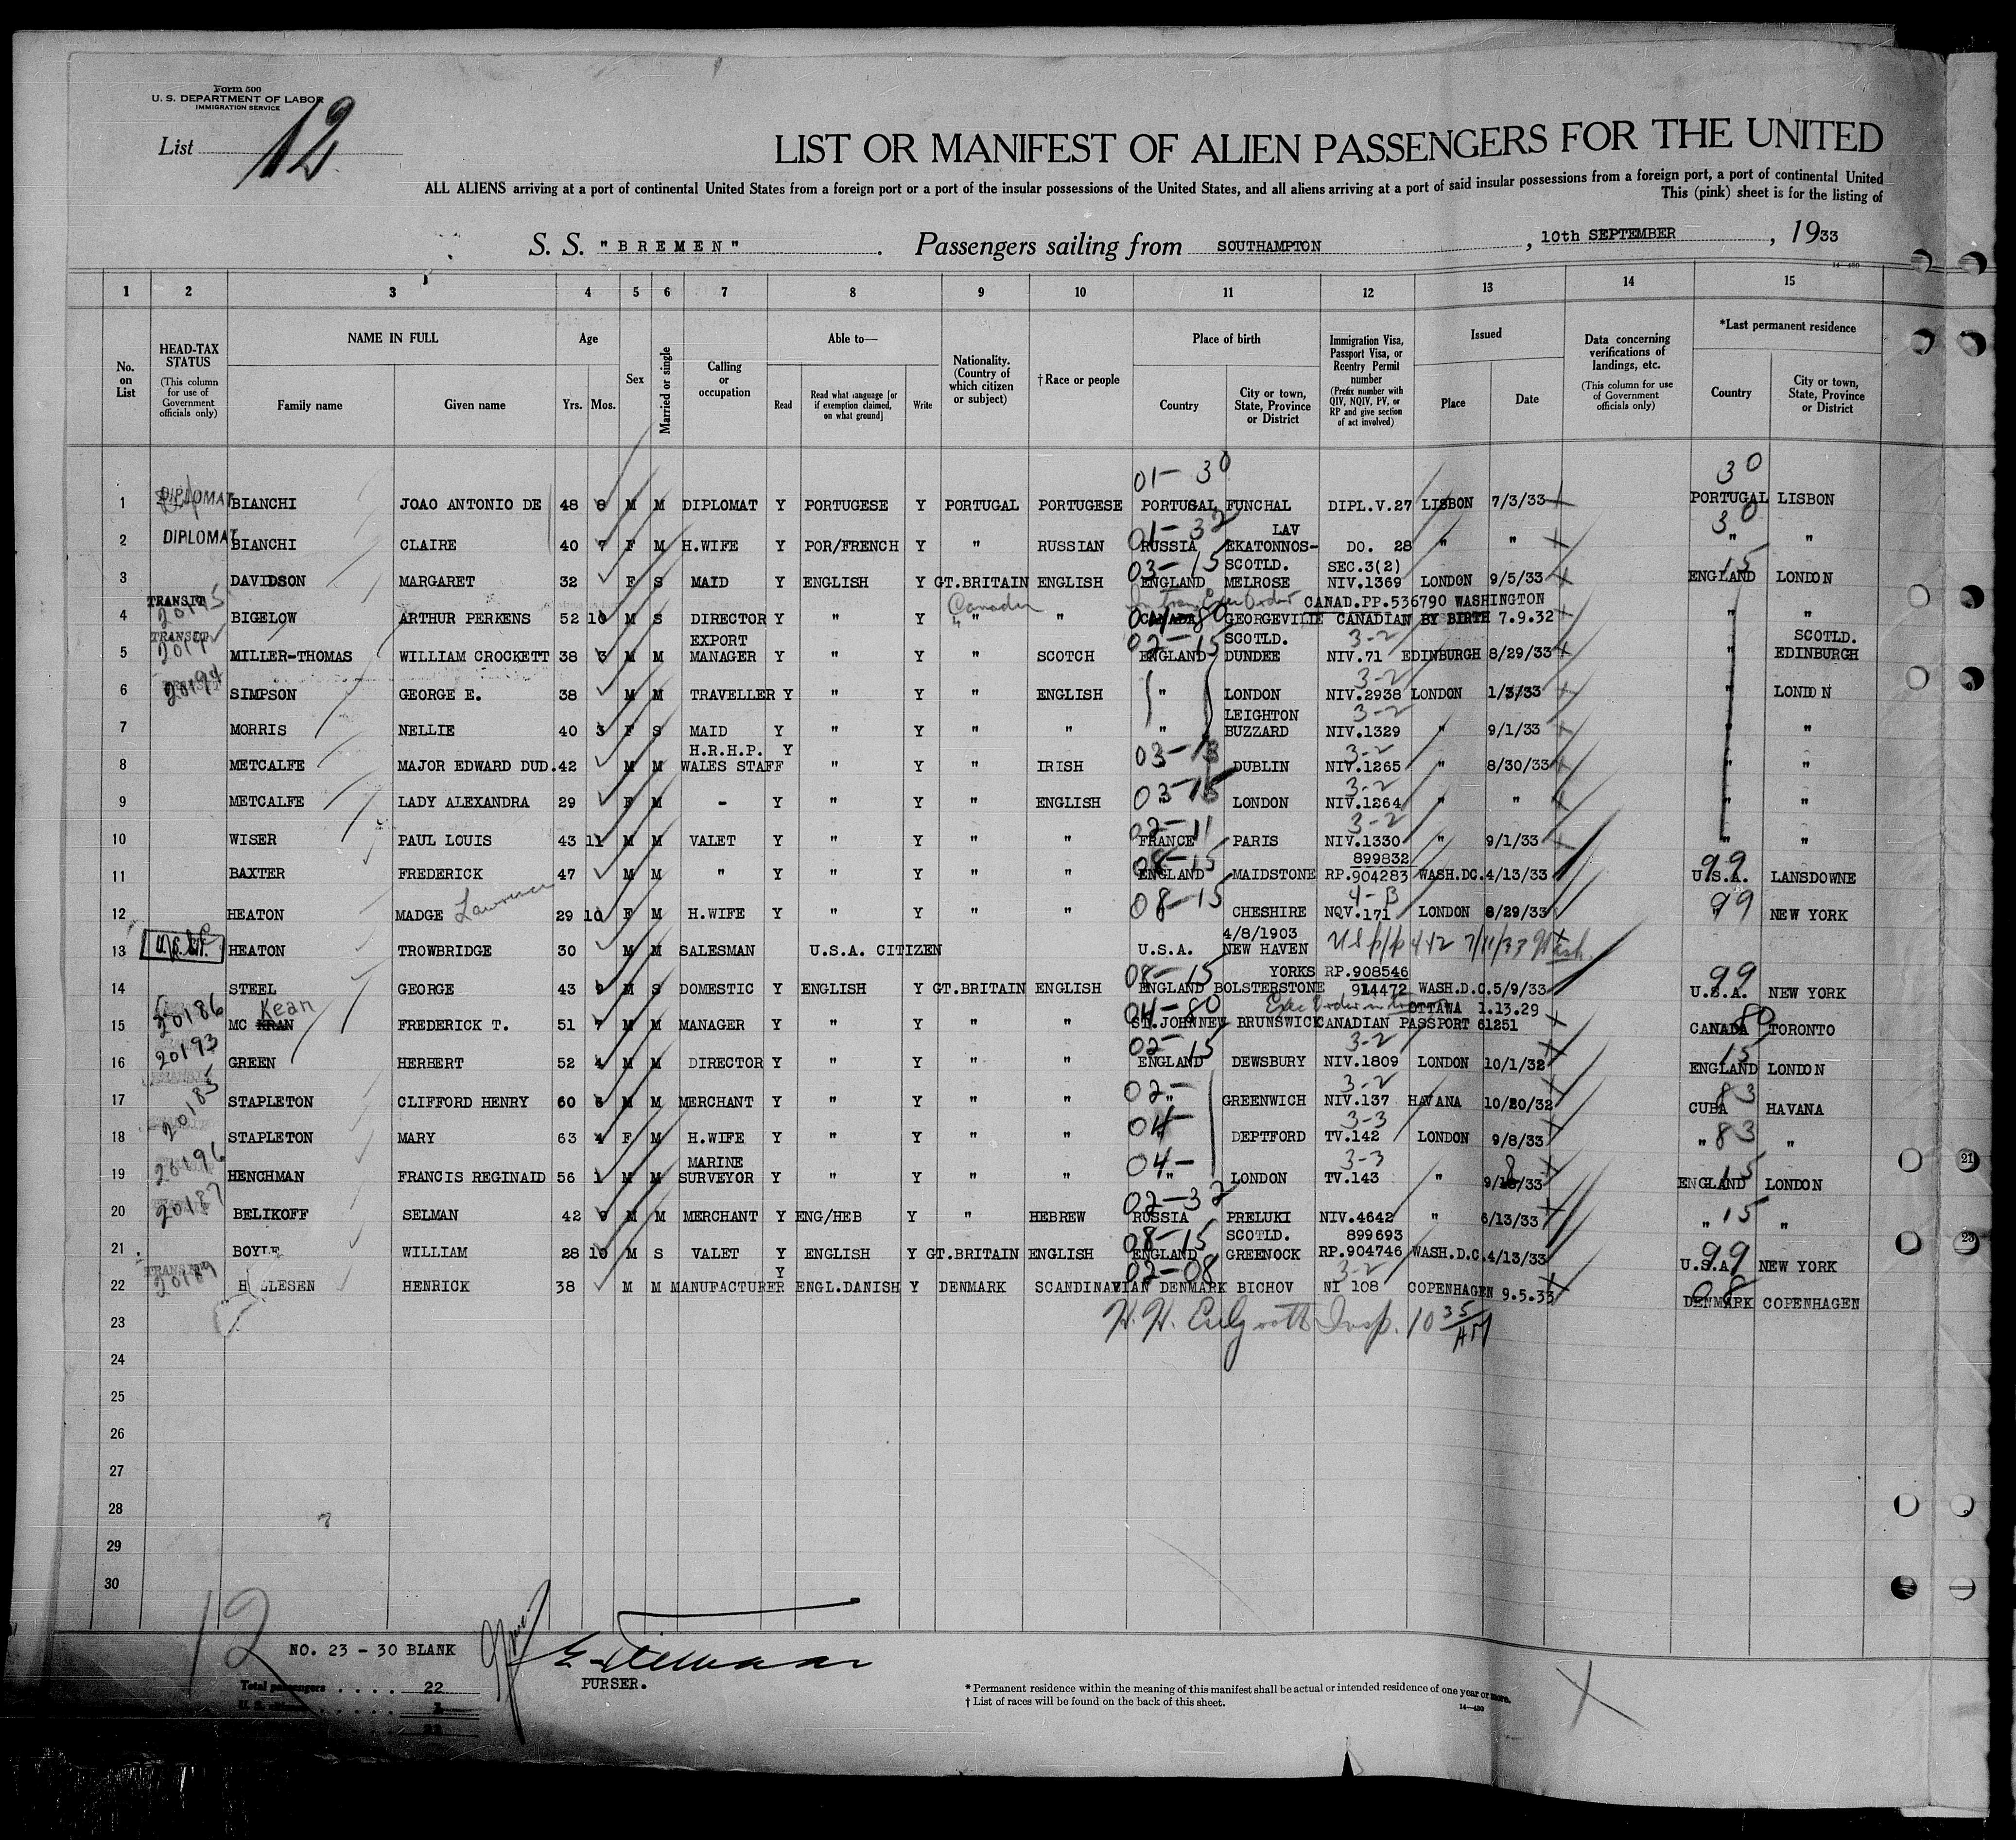 Form 500
U. S. DEPARTMENT OF LABOR
IMMIGRATION SERVICE
List 12
LIST OR MANIFEST OF ALIEN PASSENGERS FOR THE UNITED
ALL ALIENS arriving at a port of continental United States from a foreign port or a port of the insular possessions of the United States, and all aliens arriving at a port of said insular possessions from a foreign port, a port of continental United
This (pink) sheet is for the listing of
S. S. "BREMEN". Passengers sailing from SOUTHAMPTON, 10th SEPTEMBER, 1933
14—430
1 2 3 4 5 6 7 8 9 10 11 12 13 14 15
No. on List
HEAD-TAX STATUS (This column for use of Government officials only)
NAME IN FULL Family name Given name
Age Yrs. Mos.
Sex
Married or single
Calling or occupation
Able to— Read Read what language [or if exemption claimed, on what ground] Write
Nationality. (Country of which citizen or subject)
†Race or people
Place of birth Country City or town, State, Province or District
Immigration Visa, Passport Visa, or Reentry Permit number (Prefix number with QIV, NQIV, PV, or RP and give section of act involved)
Issued Place Date
Data concerning verifications of landings, etc. (This column for use of Government officials only)
*Last permanent residence Country City or town, State, Province or District
01-30 30
1 DIPLOMAT BIANCHI JOAO ANTONIO DE 48 8 M M DIPLOMAT Y PORTUGESE Y PORTUGAL PORTUGESE PORTUGAL FUNCHAL DIPL.V.27 LISBON 7/3/33 PORTUGAL LISBON
01-32 LAV 30
2 DIPLOMAT BIANCHI CLAIRE 40 7 F M H.WIFE Y POR/FRENCH Y " RUSSIAN RUSSIA EKATONNOS- DO. 28 " " " "
03-15 SCOTLD. SEC.3(2) 15
3 DAVIDSON MARGARET 32 F S MAID Y ENGLISH Y GT.BRITAIN ENGLISH ENGLAND MELROSE NIV.1369 LONDON 9/5/33 ENGLAND LONDON
TRANSIT Canadian CANAD.PP.536790 WASHINGTON
4 BIGELOW ARTHUR PERKENS 52 10 M S DIRECTOR Y " Y " " CANADA 04-80 GEORGEVILLE CANADIAN BY BIRTH 7.9.32 " "
TRANSIT EXPORT 02-15 SCOTLD. 3-2 SCOTLD.
5 MILLER-THOMAS WILLIAM CROCKETT 38 3 M M MANAGER Y " Y " SCOTCH ENGLAND DUNDEE NIV.71 EDINBURGH 8/29/33 " EDINBURGH
20194 3-2
6 SIMPSON GEORGE E. 38 M M TRAVELLER Y " Y " ENGLISH " LONDON NIV.2938 LONDON 1/3/33 " LONDON
LEIGHTON 3-2
7 MORRIS NELLIE 40 3 F S MAID Y " Y " " " BUZZARD NIV.1329 " 9/1/33 " "
H.R.H.P. Y 03-13 3-2
8 METCALFE MAJOR EDWARD DUD. 42 M M WALES STAFF " Y " IRISH DUBLIN NIV.1265 " 8/30/33 " "
3-2
9 METCALFE LADY ALEXANDRA 29 F M - Y " Y " ENGLISH 03-15 LONDON NIV.1264 " " " "
02-11 3-2
10 WISER PAUL LOUIS 43 11 M M VALET Y " Y " " FRANCE PARIS NIV.1330 " 9/1/33 " "
08-15 899832 99
11 BAXTER FREDERICK 47 M M " Y " Y " " ENGLAND MAIDSTONE RP.904283 WASH.DC. 4/13/33 U.S.A. LANSDOWNE
Lawrence 08-15 4-B 99
12 HEATON MADGE 29 10 F M H.WIFE Y " Y " " CHESHIRE NQV.171 LONDON 8/29/33 " NEW YORK
4/8/1903
13 HEATON TROWBRIDGE 30 M M SALESMAN U.S.A. CITIZEN U.S.A. NEW HAVEN US p/p 442 7/11/33 Wash.
08-15 YORKS RP.908546 99
14 STEEL GEORGE 43 9 M S DOMESTIC Y ENGLISH Y GT.BRITAIN ENGLISH ENGLAND BOLSTERSTONE 914472 WASH.D.C. 5/9/33 U.S.A. NEW YORK
20186 Kean 04-80 OTTAWA 1.13.29 80
15 MC KRAN FREDERICK T. 51 7 M M MANAGER Y " Y " " ST.JOHN NEW BRUNSWICK CANADIAN PASSPORT 61251 CANADA TORONTO
20193 02-15 3-2 15
16 GREEN HERBERT 52 4 M M DIRECTOR Y " Y " " ENGLAND DEWSBURY NIV.1809 LONDON 10/1/32 ENGLAND LONDON
20185 02- 3-2 83
17 STAPLETON CLIFFORD HENRY 60 6 M M MERCHANT Y " Y " " " GREENWICH NIV.137 HAVANA 10/20/32 CUBA HAVANA
04- 3-3 83
18 STAPLETON MARY 63 4 F M H.WIFE Y " Y " " DEPTFORD TV.142 LONDON 9/8/33 " "
20196 MARINE 04- 3-3 8 15
19 HENCHMAN FRANCIS REGINALD 56 1 M M SURVEYOR Y " Y " " " LONDON TV.143 " 9/18/33 ENGLAND LONDON
20187 02-32 15
20 BELIKOFF SELMAN 42 M M MERCHANT Y ENG/HEB Y " HEBREW RUSSIA PRELUKI NIV.4642 " 6/13/33 " "
08-15 SCOTLD. 899693 99
21 BOYLE WILLIAM 28 10 M S VALET Y ENGLISH Y GT.BRITAIN ENGLISH ENGLAND GREENOCK RP.904746 WASH.D.C. 4/13/33 U.S.A. NEW YORK
TRANSIT 20189 Y 02-08 3-2 08
22 LLESEN HENRICK 38 M M MANUFACTURER ENGL.DANISH Y DENMARK SCANDINAVIAN DENMARK BICHOV NI 108 COPENHAGEN 9.5.33 DENMARK COPENHAGEN
23 H. H. Insp. 10 35/AM
24
25
26
27
28
29
30
12
NO. 23 - 30 BLANK
PURSER.
Total passengers . . . . 22
*Permanent residence within the meaning of this manifest shall be actual or intended residence of one year or more.
†List of races will be found on the back of this sheet.
14—430
21
23